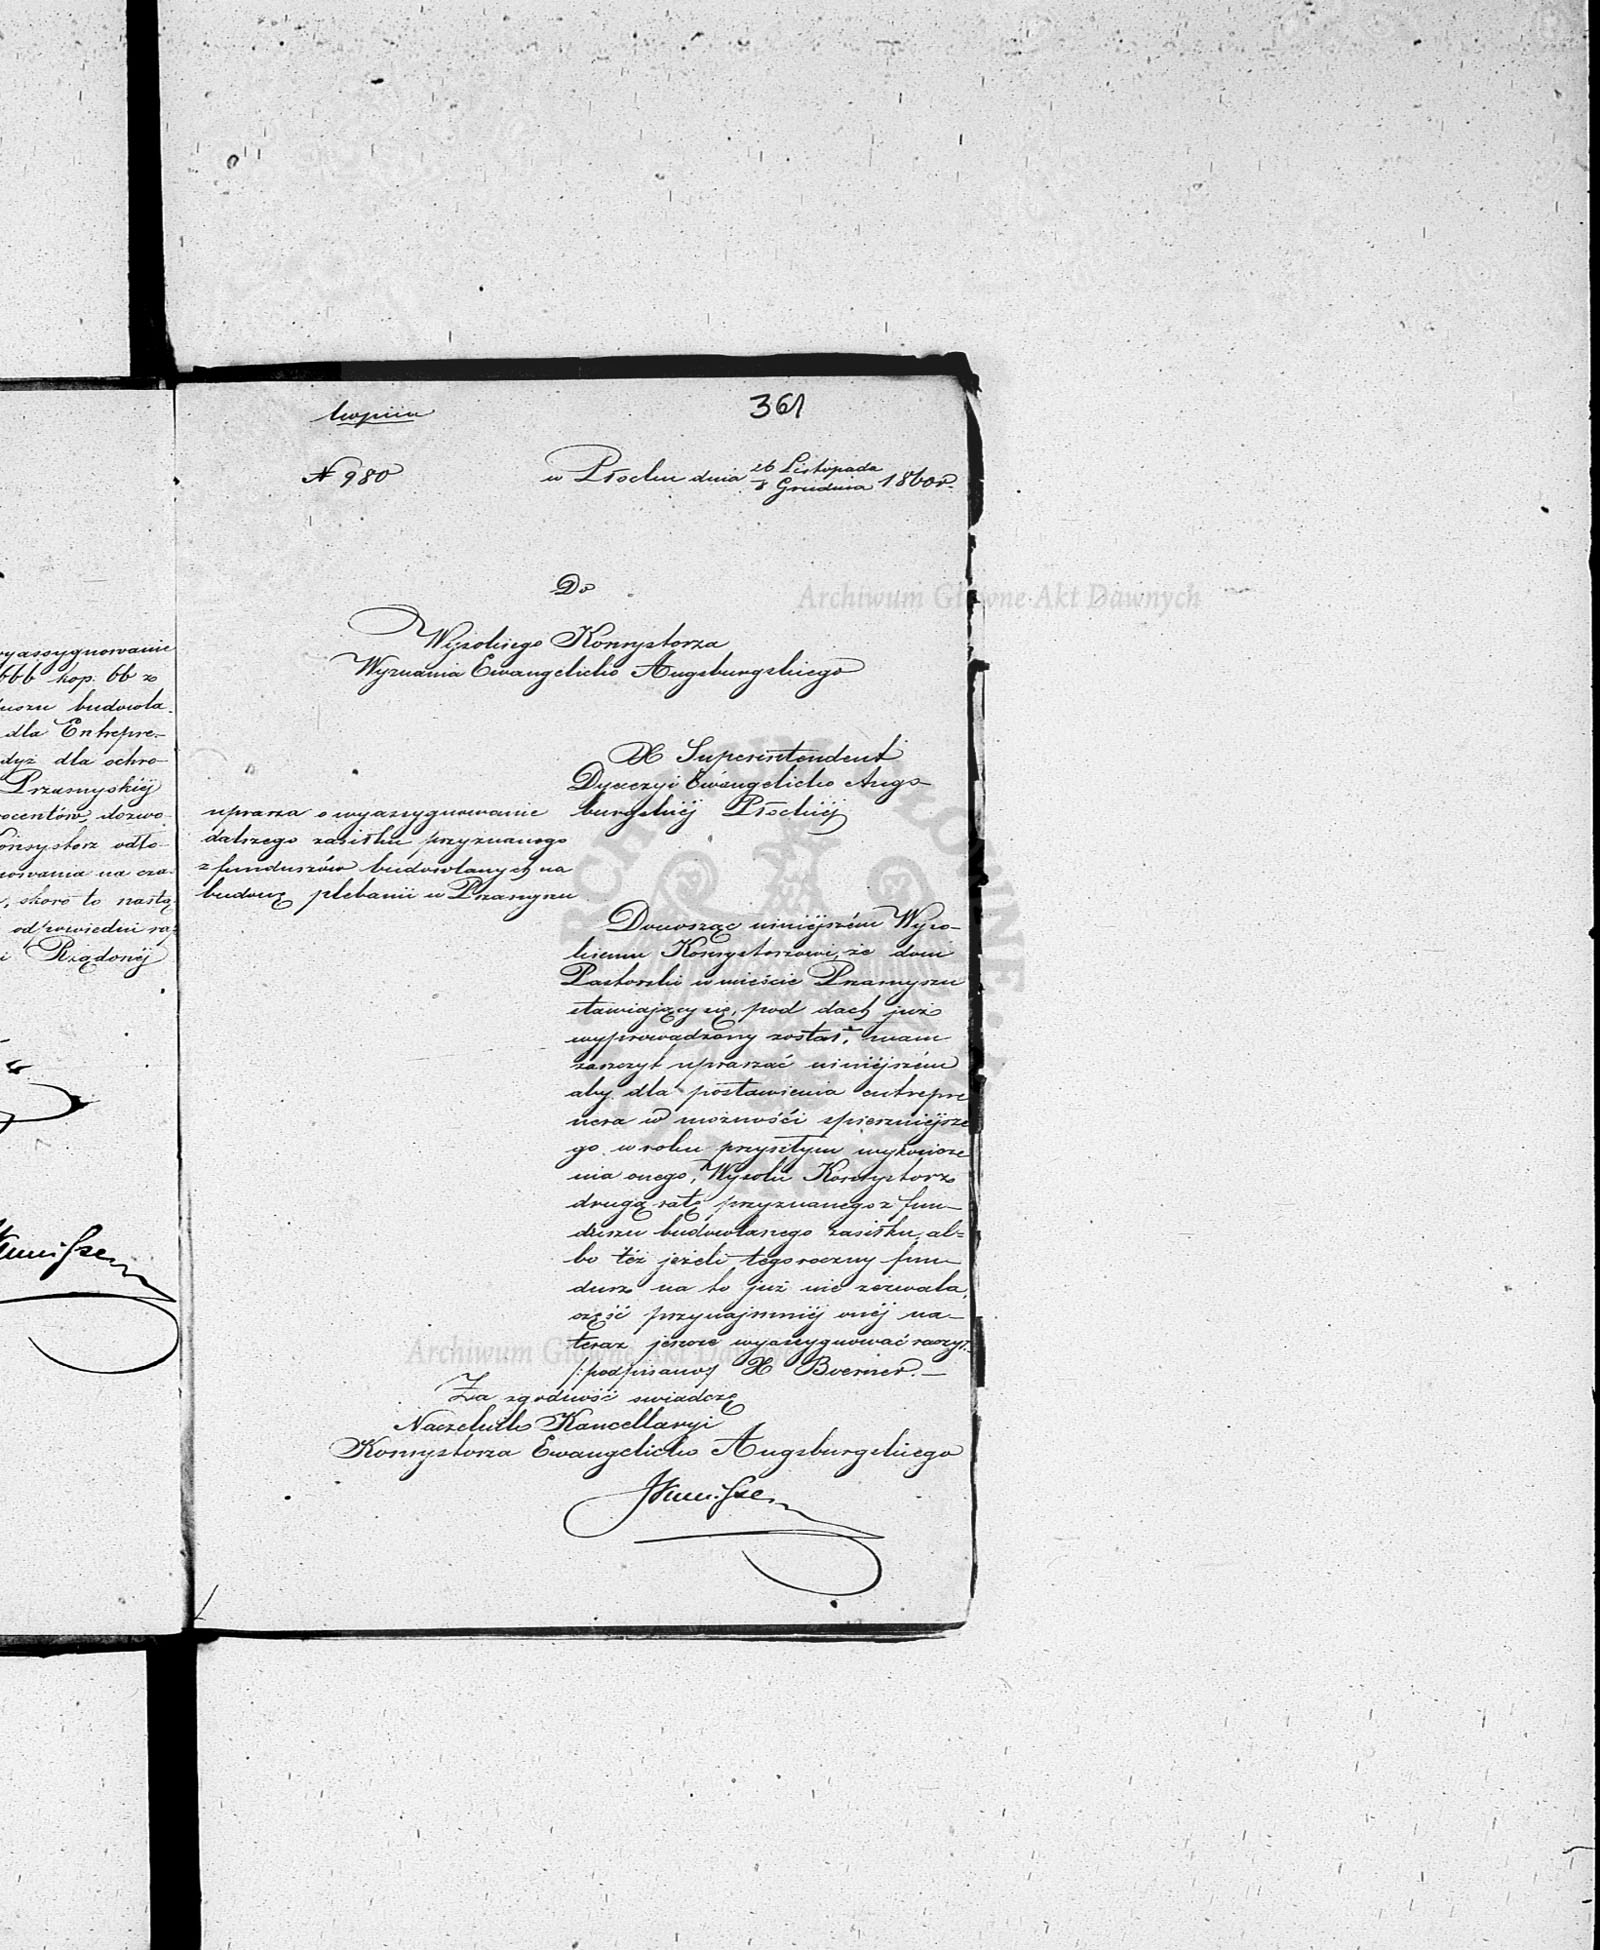 yassygnowanie
666 kop. 66 z
uszu budowla-
dla Entrepre-
dyż dla ochro-
Przasnyskiéj
ocentów, dozwo-
onsystorz odło-
nowania na cza-
, skoro to nastą-
odpowiedni ra-
i Rządowéj
kopiia
361
N 980
w Płocku dnia 26 Listopada
8 Grudnia 1860 r.
Do
Wysokiego Konsystorza
Wyznania Ewangelicko Augsburgskiego
X Superintendent
Dyecezyi Ewangelicko Augs-
burgskiéj Płockiéj
uprasza o wyassygnowanie
dalszego zasiłku przyznanego
z funduszów budowlanych na
budowę plebanii w Przasnyszu
Donosząc niniéjszém Wyso-
kiemu Konsystorzowi, że dom
Pastorski w mieście Przasnyszu
stawiający się, pod dach już
wyprowadzony został, mam
zaszczyt upraszać niniéjszém
aby dla postawienia entrepre
nera w możności spieszniejsze
go w roku przyszłym wykończe
nia onego, Wysoki Konsystorz
drugą ratę przyznanego z fun-
duszu budowlanego zasiłku, al-
bo téż jeżeli tegoroczny fun-
dusz na to już nie zezwala,
część przynajmniéj onéj na-
teraz jeszcze wyassygnować raczył.
/:podpisano:/ X Boerner. —
Za zgodność swiadczę
Naczelnik Kancellaryi
Konsystorza Ewangelicko Augsburgskiego
Archiwum Główne Akt Dawnych
Archiwum Główne Akt Dawnych